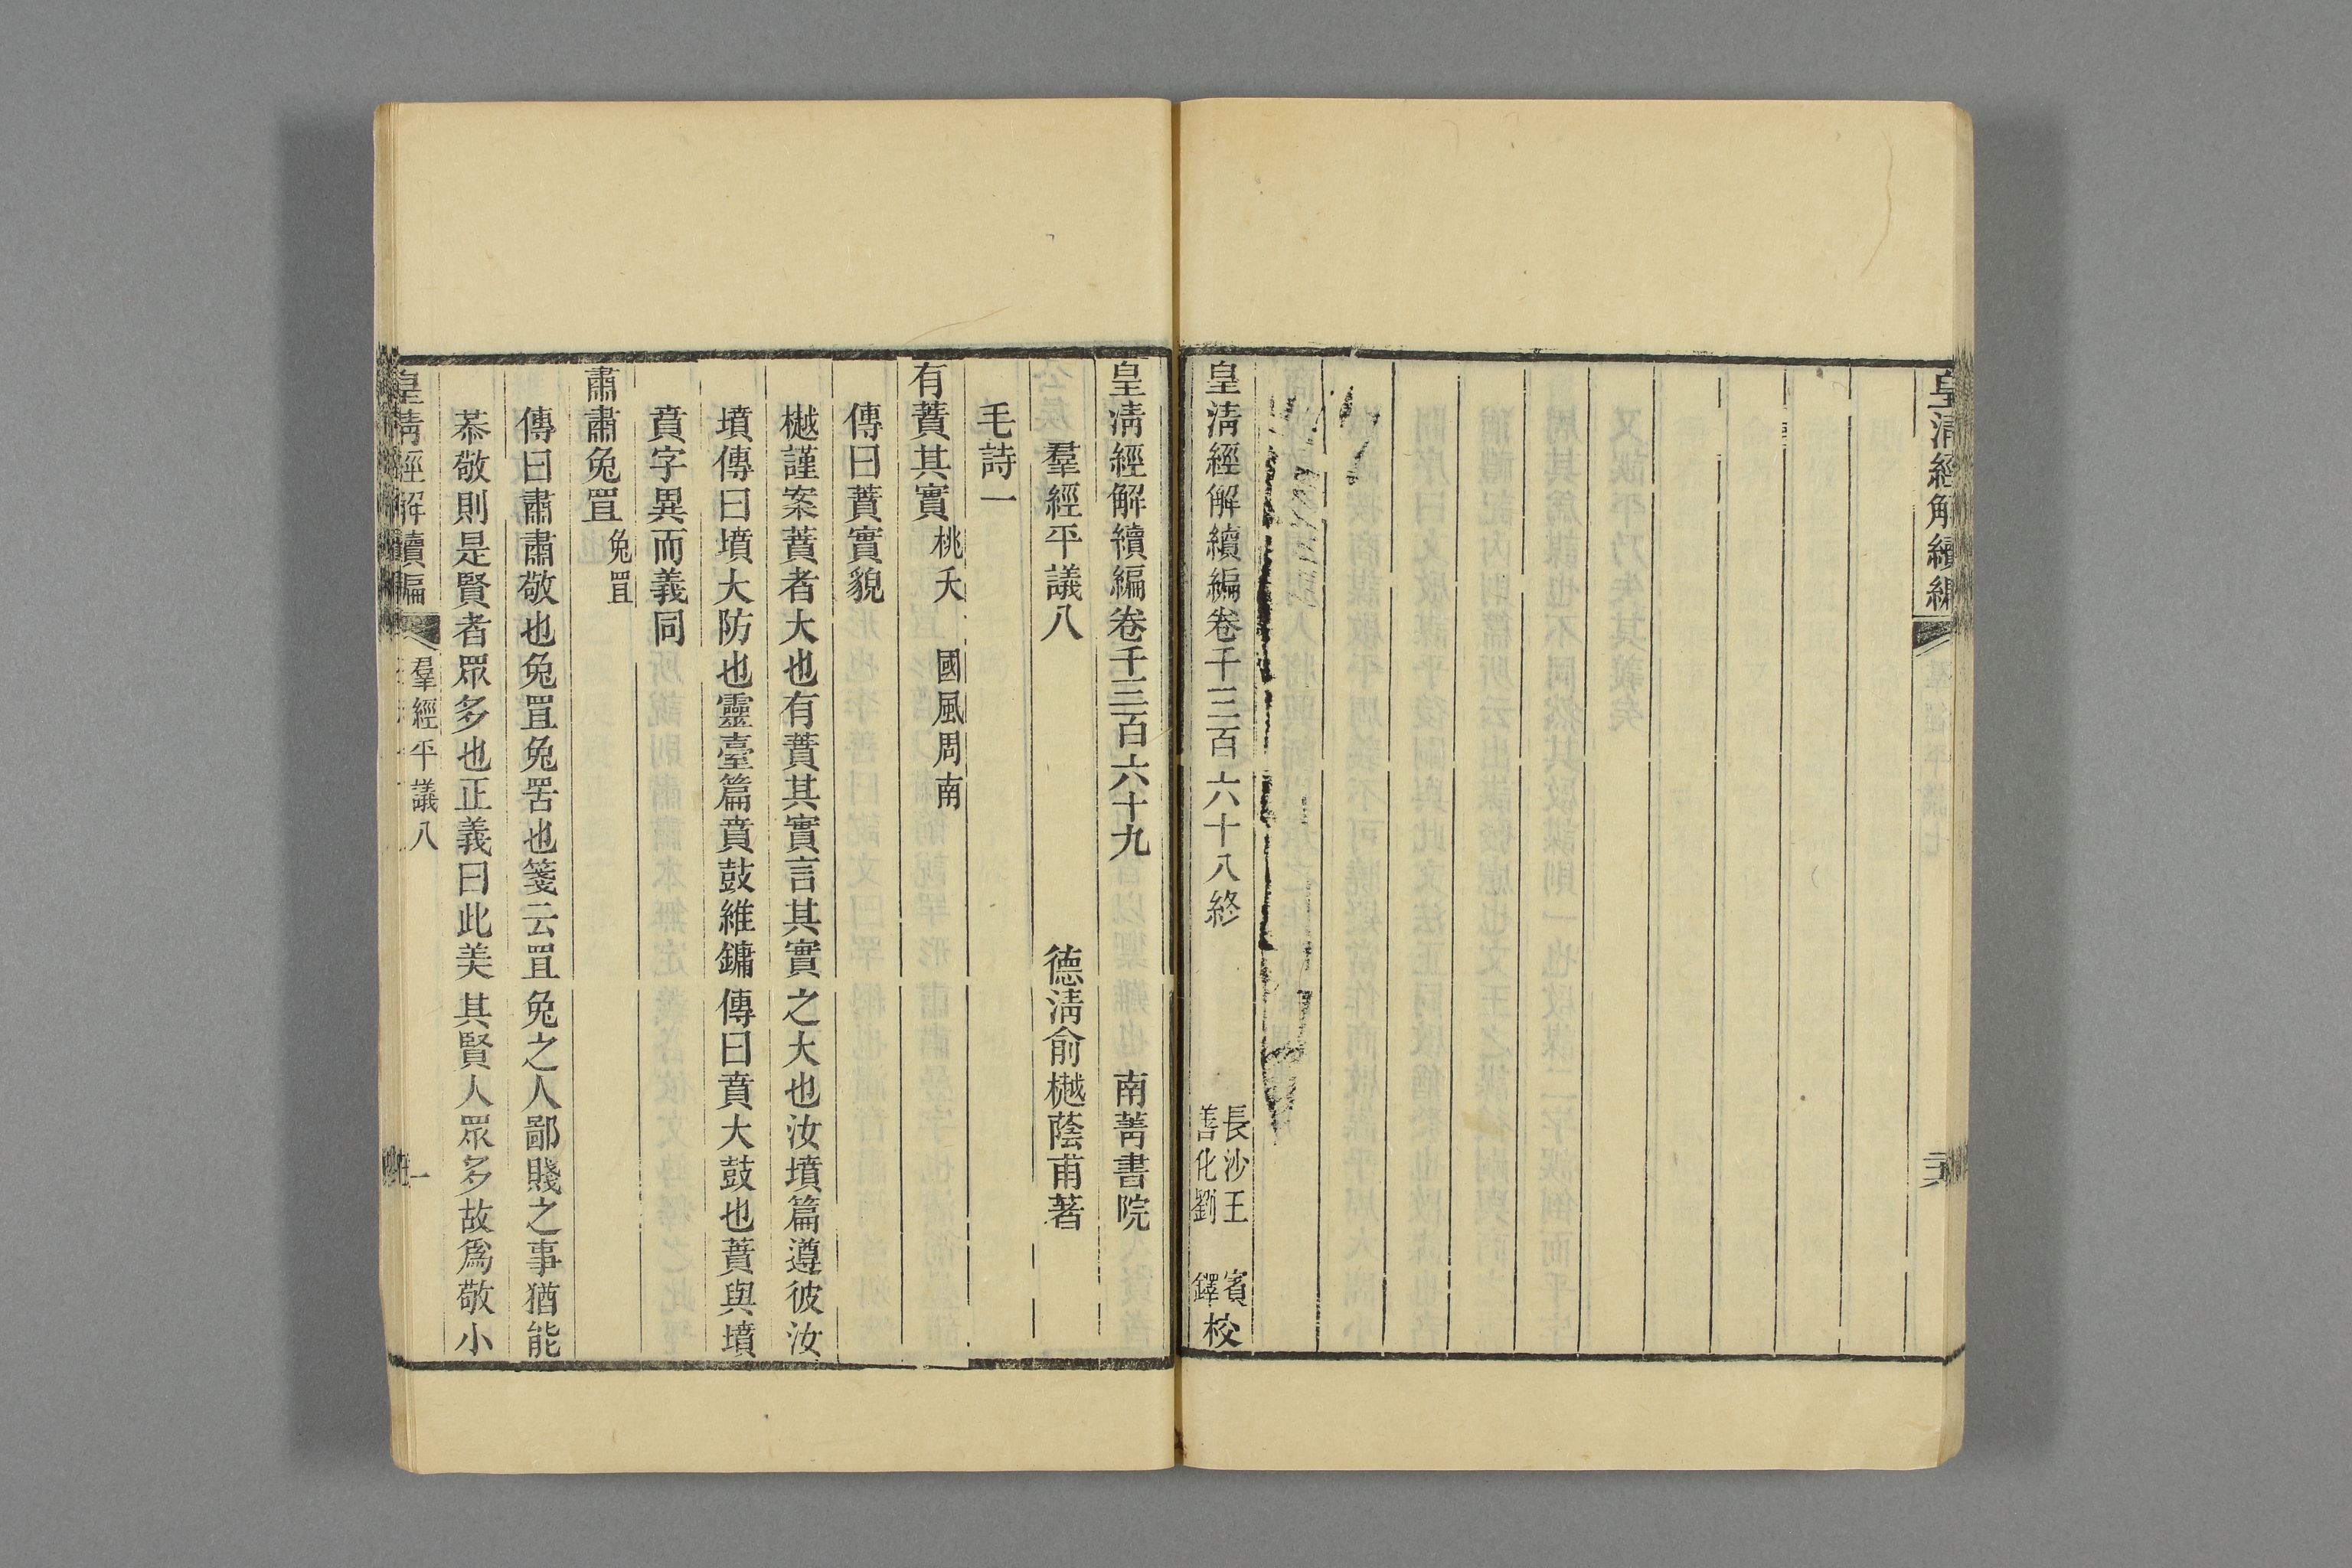 皇清經解續編
皇清經解續編卷千三百六十八終
長沙王　賓
善化劉　鐸
校
皇清經解續編卷千三百六十九　南菁書院
羣經平議八　德清俞樾蔭甫著
毛詩一
有蕡其實桃夭　國風周南
傳曰蕡實貌
樾謹案蕡者大也有蕡其實言其實之大也汝墳篇遵彼汝
墳傳曰墳大防也靈臺篇賁鼓維鏞傳曰賁大鼓也蕡與墳
賁字異而義同
肅肅兔罝兔罝
傳曰肅肅敬也兔罝兔罟也箋云罝兔之人鄙賤之事猶能
恭敬則是賢者眾多也正義曰此美其賢人眾多故爲敬小
皇清經解續編　羣經平議八　一